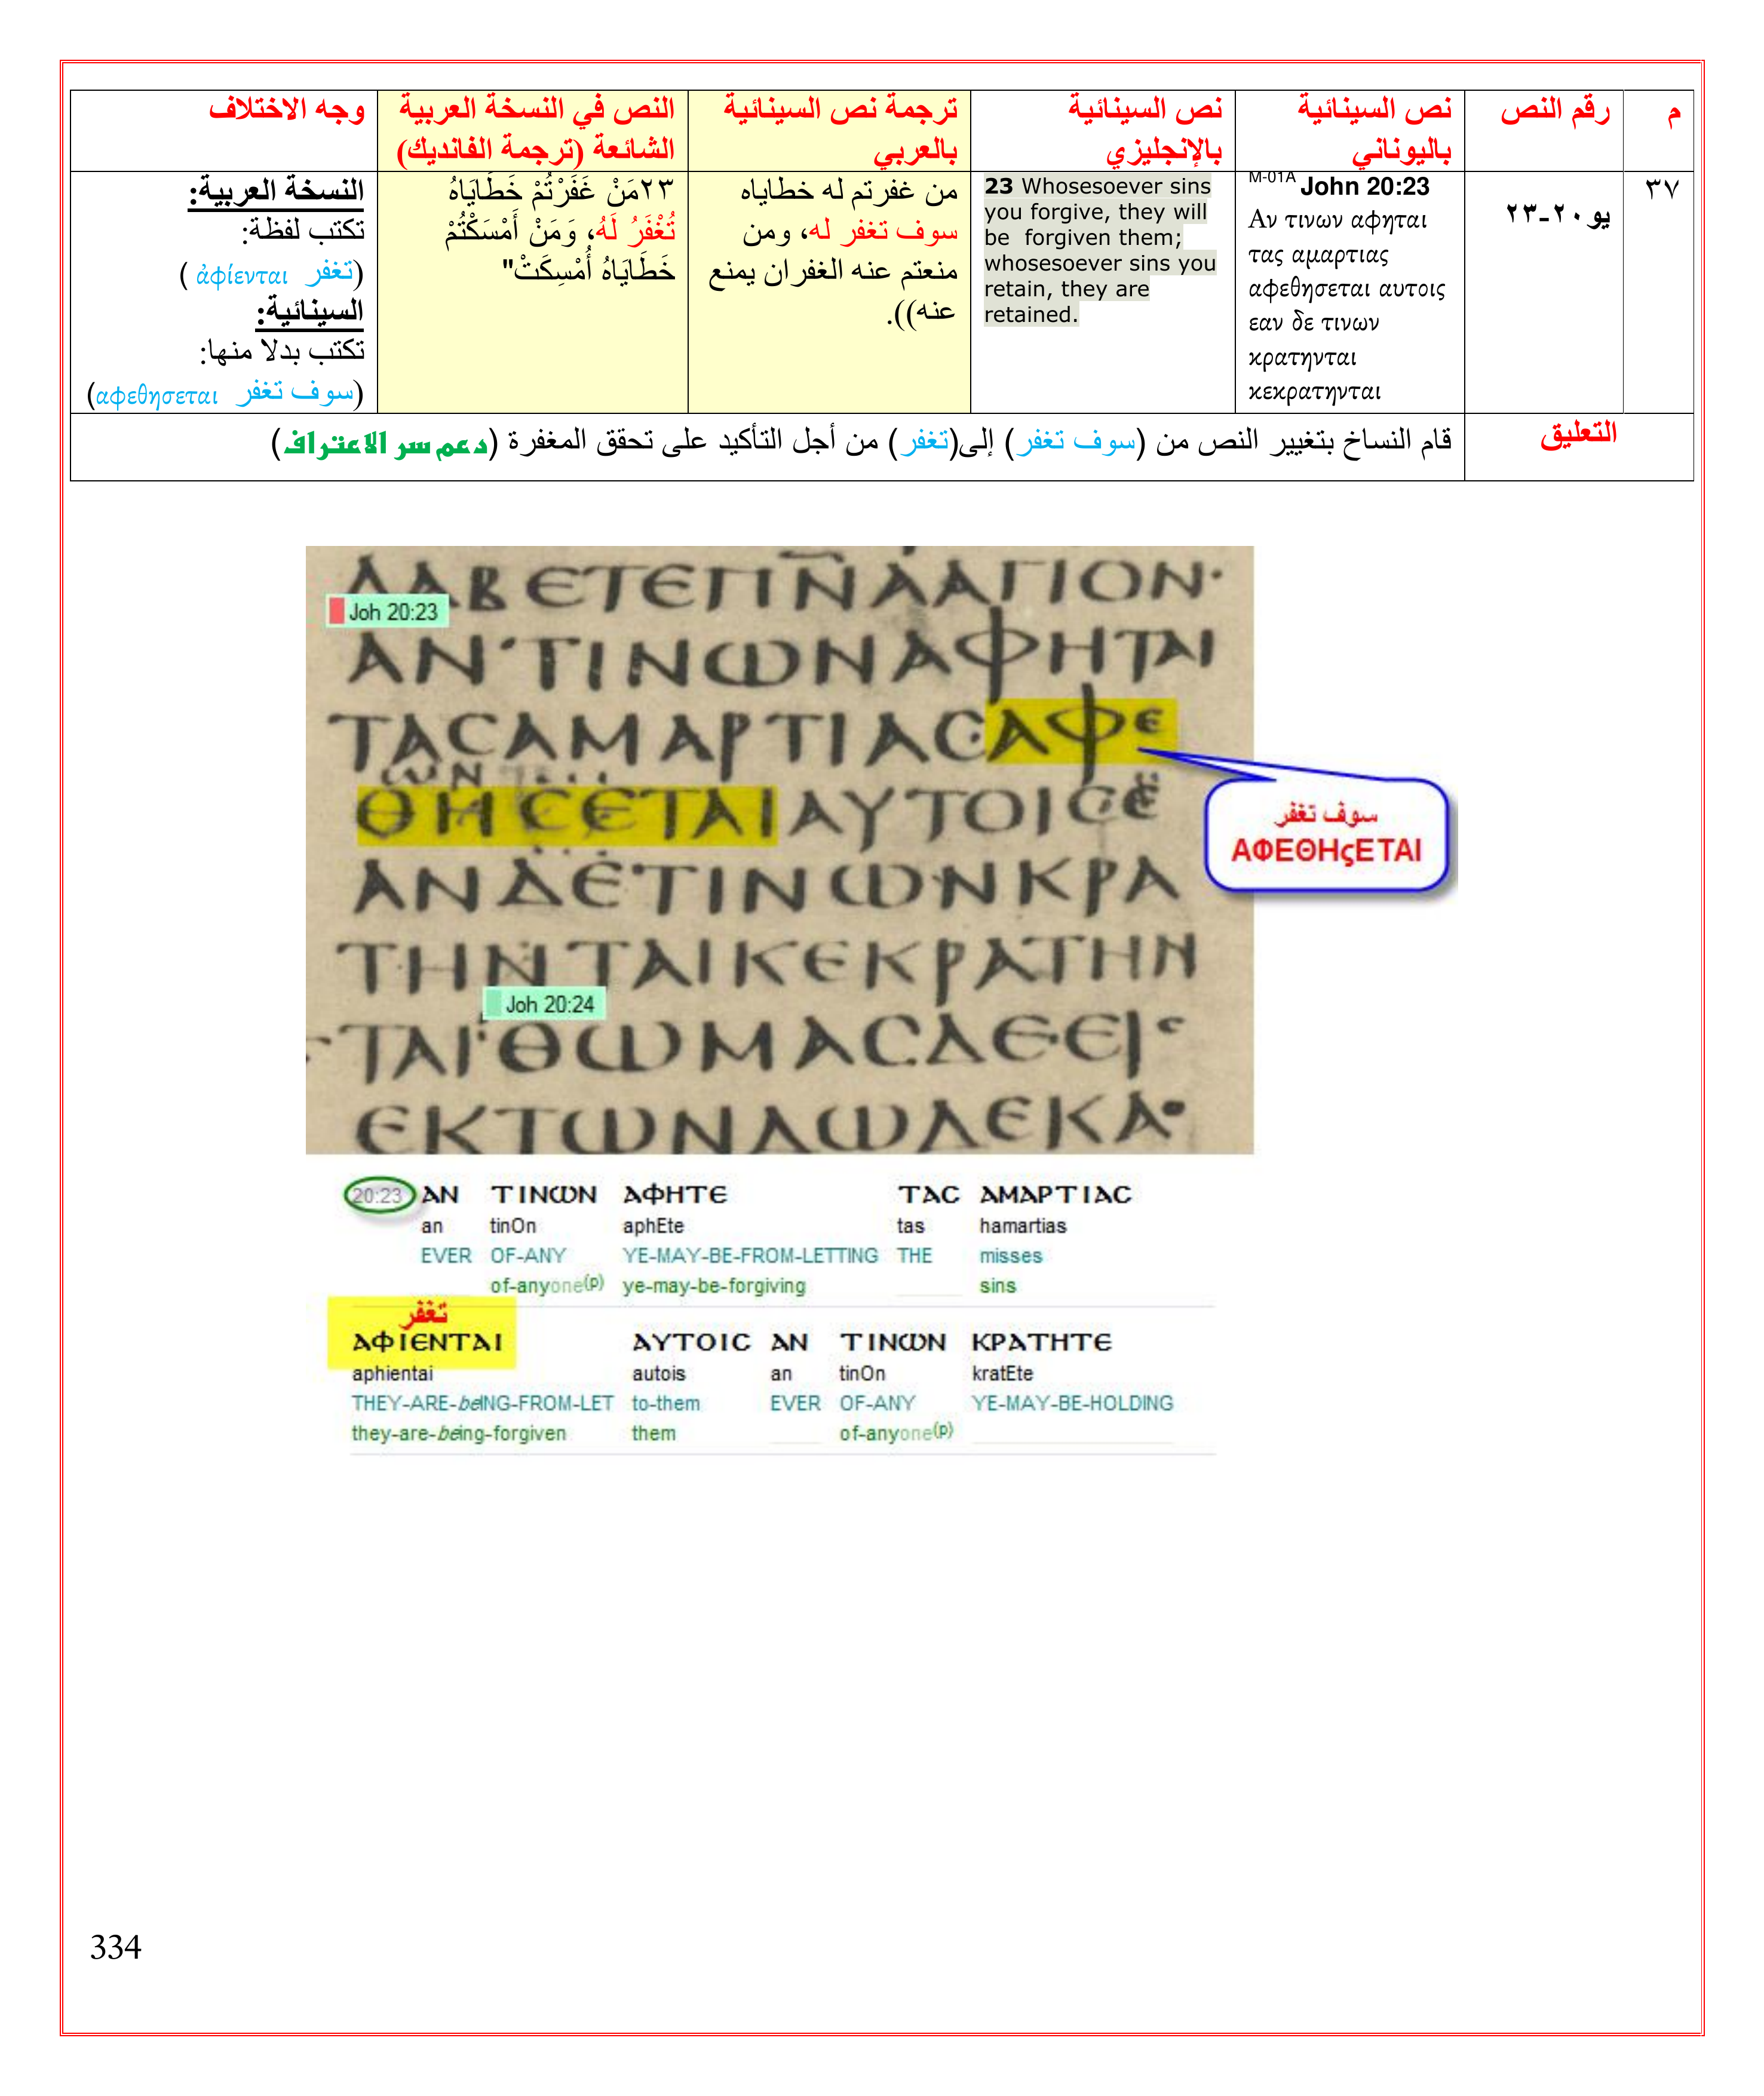 م
رقم النص
نص السينائية
باليوناني
نص السينائية
بالإنجليزي
ترجمة نص السينائية
بالعربي
النص في النسخة العربية
الشائعة (ترجمة الفانديك)
وجه الاختلاف
٣٧
يو ٢٠-٢٣
M-01A John 20:23
Αν τινων αφηται
τας αμαρτιας
αφεθησεται αυτοις
εαν δε τινων
κρατηνται
κεκρατηνται
23 Whosesoever sins
you forgive, they will
be forgiven them;
whosesoever sins you
retain, they are
retained.
من غفرتم له خطاياه
سوف تغفر له، ومن
منعتم عنه الغفران يمنع
عنه)).
٢٣مَنْ غَفَرْتُمْ خَطَايَاهُ
تُغْفَرُ لَهُ، وَمَنْ أَمْسَكْتُمْ
خَطَايَاهُ أُمْسِكَتْ"
النسخة العربية:
تكتب لفظة:
(تغفر ἀφίενται )
السينائية:
تكتب بدلا منها:
(سوف تغفر αφεθησεται)
التعليق
قام النساخ بتغيير النص من (سوف تغفر) إلى(تغفر) من أجل التأكيد على تحقق المغفرة (دعم سر الاعتراف)
ΛΑΒΕΤΕΠΝΑΑΓΙΟΝ·
Joh 20:23
ΑΝ ΤΙΝΩΝΑΦΗΤΑΙ
ΤΑϹΑΜΑΡΤΙΑϹΑΦΕ
ΘΗϹΕΤΑΙΑΥΤΟΙϹΕ
ΑΝΔΕΤΙΝΩΝΚΡΑ
ΤΗΝΤΑΙΚΕΚΡΑΤΗΝ
Joh 20:24
ΤΑΙ ΘΩΜΑϹΔΕΕΙϹ
ΕΚΤΩΝΔΩΔΕΚΑ·
سوف تغفر
ΑΦΕΘΗςΕΤΑΙ
20:23 ΑΝ ΤΙΝΩΝ ΑΦΗΤΕ ΤΑϹ ΑΜΑΡΤΙΑϹ
an tinOn aphEte tas hamartias
EVER OF-ANY YE-MAY-BE-FROM-LETTING THE misses
of-anyone(p) ye-may-be-forgiving sins
تغفر
ΑΦΙΕΝΤΑΙ ΑΥΤΟΙϹ ΑΝ ΤΙΝΩΝ ΚΡΑΤΗΤΕ
aphientai autois an tinOn kratEte
THEY-ARE-beING-FROM-LET to-them EVER OF-ANY YE-MAY-BE-HOLDING
they-are-being-forgiven them of-anyone(p)
334